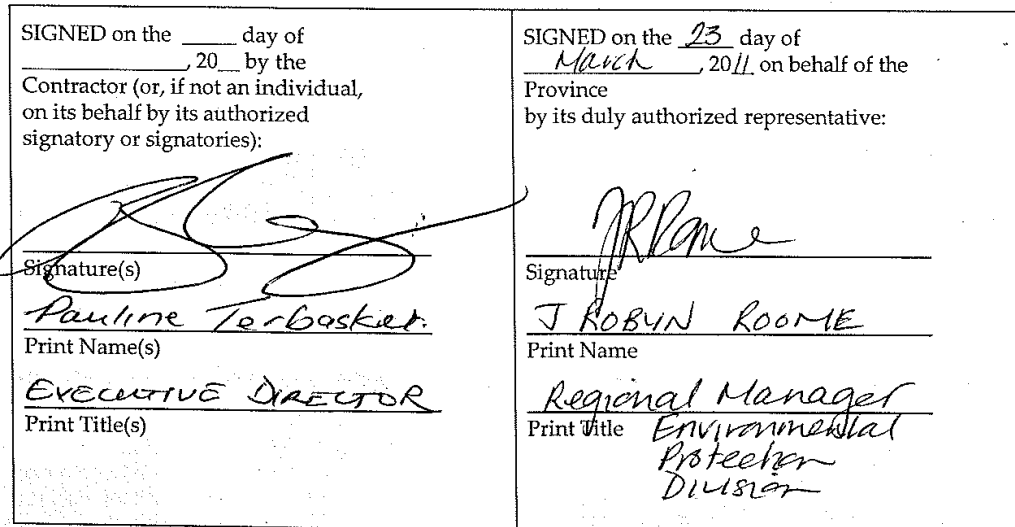 SIGNED on the _____ day of
_____________, 20__ by the
Contractor (or, if not an individual,
on its behalf by its authorized
signatory or signatories):
Signature(s)
Pauline Terbasket.
Print Name(s)
EXECUTIVE DIRECTOR
Print Title(s)
SIGNED on the 23 day of
March, 2011 on behalf of the
Province
by its duly authorized representative:
JRRoome
Signature
J ROBYN ROOME
Print Name
Regional Manager
Print Title Environmental
Protection
Division